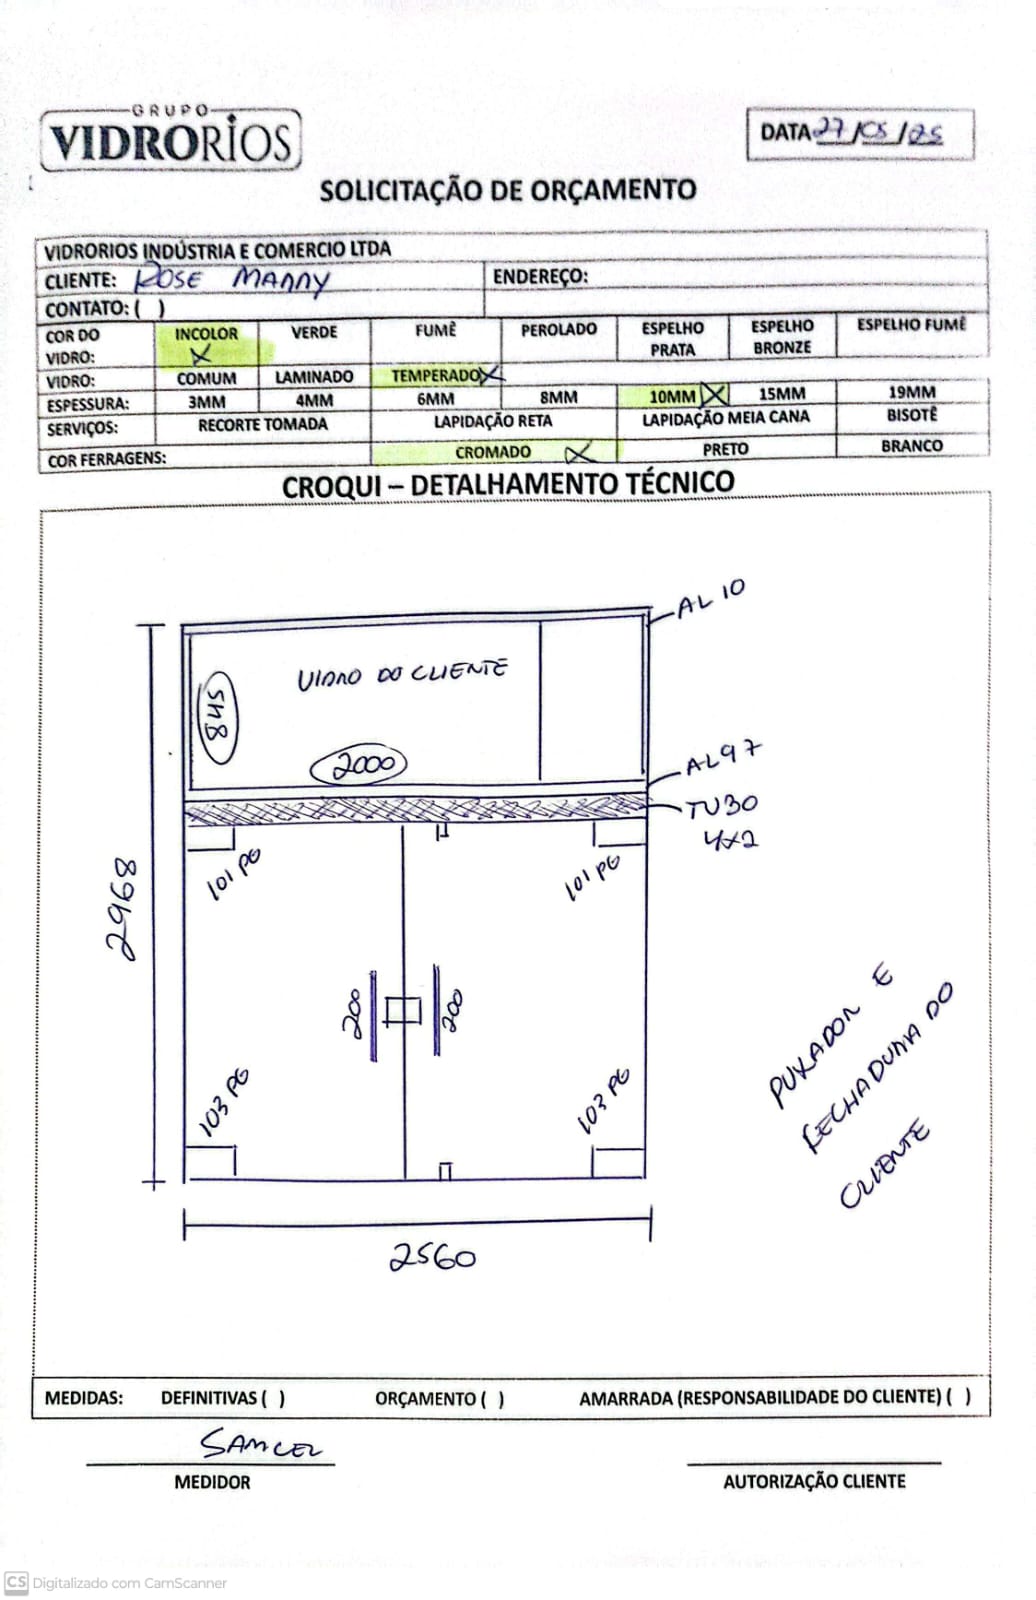 GRUPO
VIDRORIOS
DATA 27/05/25
SOLICITAÇÃO DE ORÇAMENTO
VIDRORIOS INDÚSTRIA E COMERCIO LTDA
CLIENTE: ROSE MANNY ENDEREÇO:
CONTATO: ( )
COR DO VIDRO: INCOLOR X VERDE FUMÊ PEROLADO ESPELHO PRATA ESPELHO BRONZE ESPELHO FUMÊ
VIDRO: COMUM LAMINADO TEMPERADO X
ESPESSURA: 3MM 4MM 6MM 8MM 10MM X 15MM 19MM
SERVIÇOS: RECORTE TOMADA LAPIDAÇÃO RETA LAPIDAÇÃO MEIA CANA BISOTÊ
COR FERRAGENS: CROMADO X PRETO BRANCO
CROQUI – DETALHAMENTO TÉCNICO
AL 10
VIDRO DO CLIENTE
548
2000
AL97
TUBO
4x2
101 PG
101 PG
2968
200
200
PUXADOR E
FECHADURA DO
CLIENTE
103 PG
103 PG
2560
MEDIDAS: DEFINITIVAS ( ) ORÇAMENTO ( ) AMARRADA (RESPONSABILIDADE DO CLIENTE) ( )
SAMUEL
MEDIDOR
AUTORIZAÇÃO CLIENTE
CS Digitalizado com CamScanner